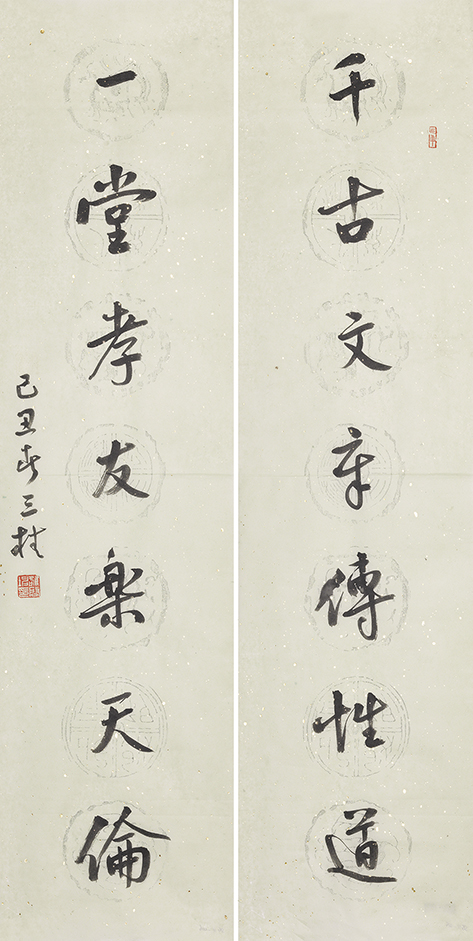 千古文章傳性道
一堂孝友樂天倫
己丑春三桂